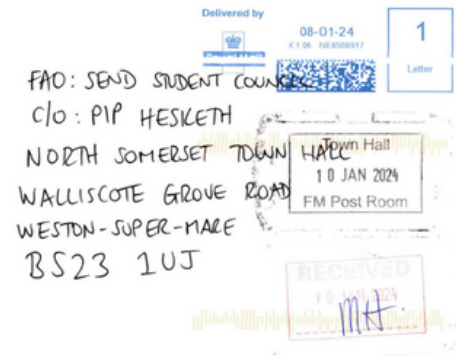 Delivered by
08-01-24
£1.06 NE8508917
1
Letter
FAO: SEND STUDENT COUNCIL
C/O: PIP HESKETH
NORTH SOMERSET TOWN HALL
WALLISCOTE GROVE ROAD
WESTON-SUPER-MARE
BS23 1UJ
Town Hall
10 JAN 2024
FM Post Room
RECEIVED
10 JAN 2024
MH.